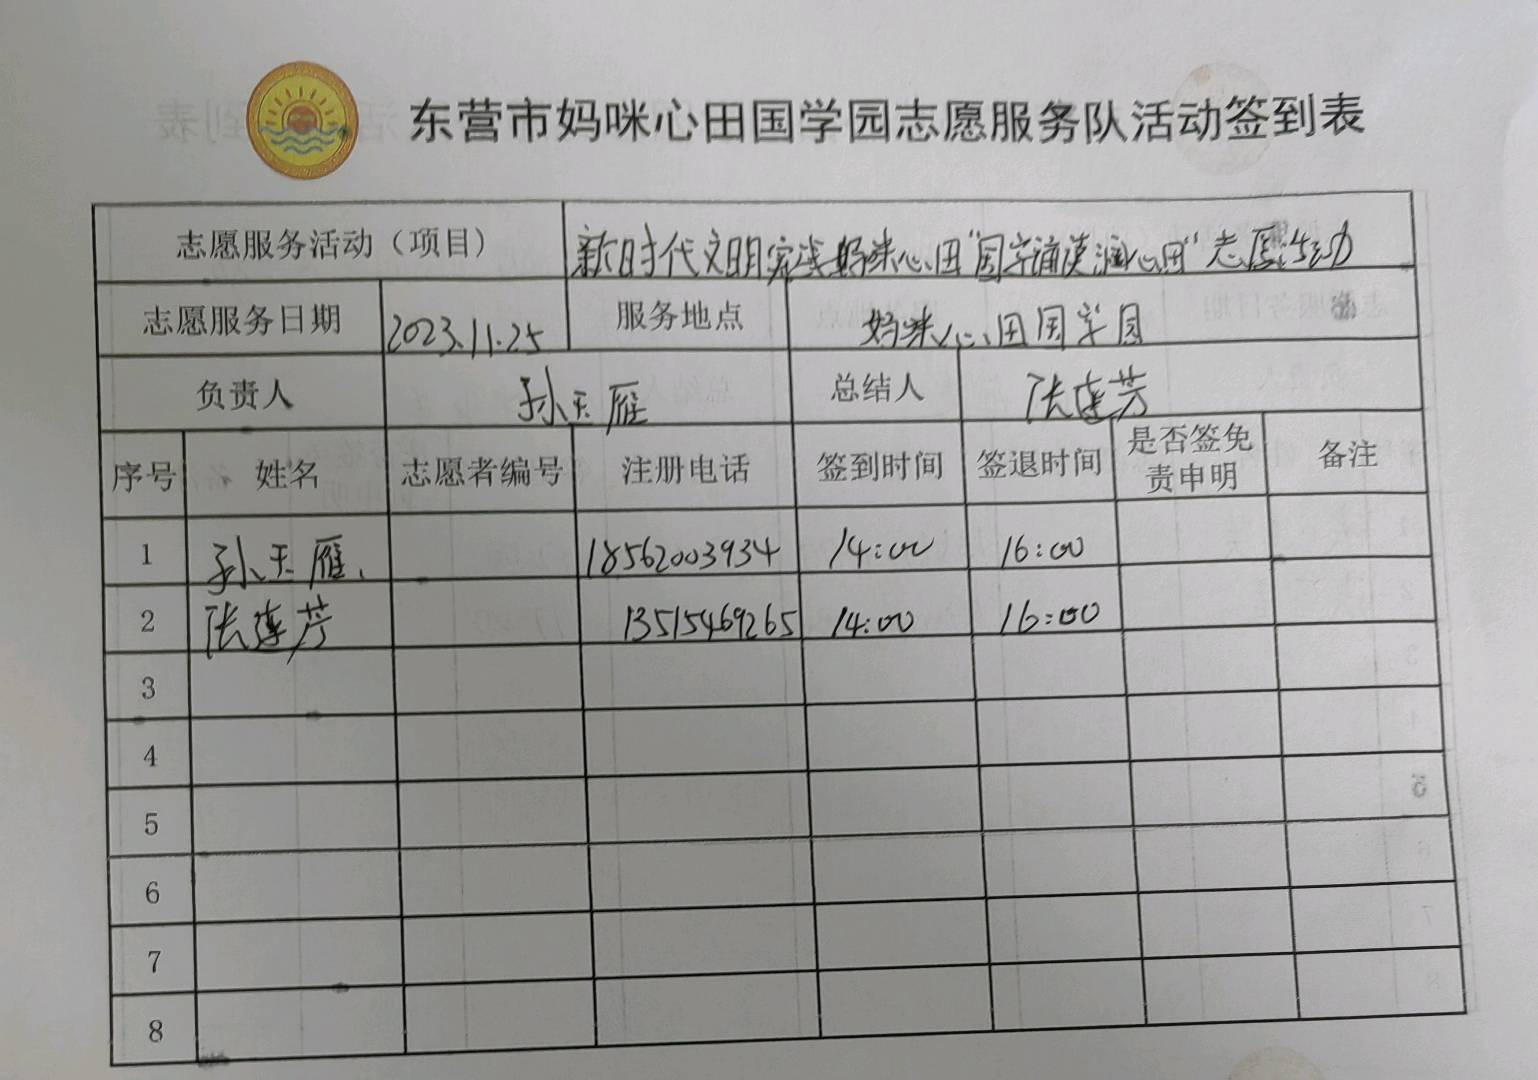 东营市妈咪心田国学园志愿服务队活动签到表
志愿服务活动（项目） 新时代文明实践妈咪心田"国学诵读润心田"志愿活动
志愿服务日期 2023.11.25 服务地点 妈咪心田国学园
负责人 孙玉雁 总结人 张莲芳
序号 姓名 志愿者编号 注册电话 签到时间 签退时间 是否签免责申明 备注
1 孙玉雁 18562003934 14:00 16:00
2 张莲芳 13515469265 14:00 16:00
3
4
5
6
7
8